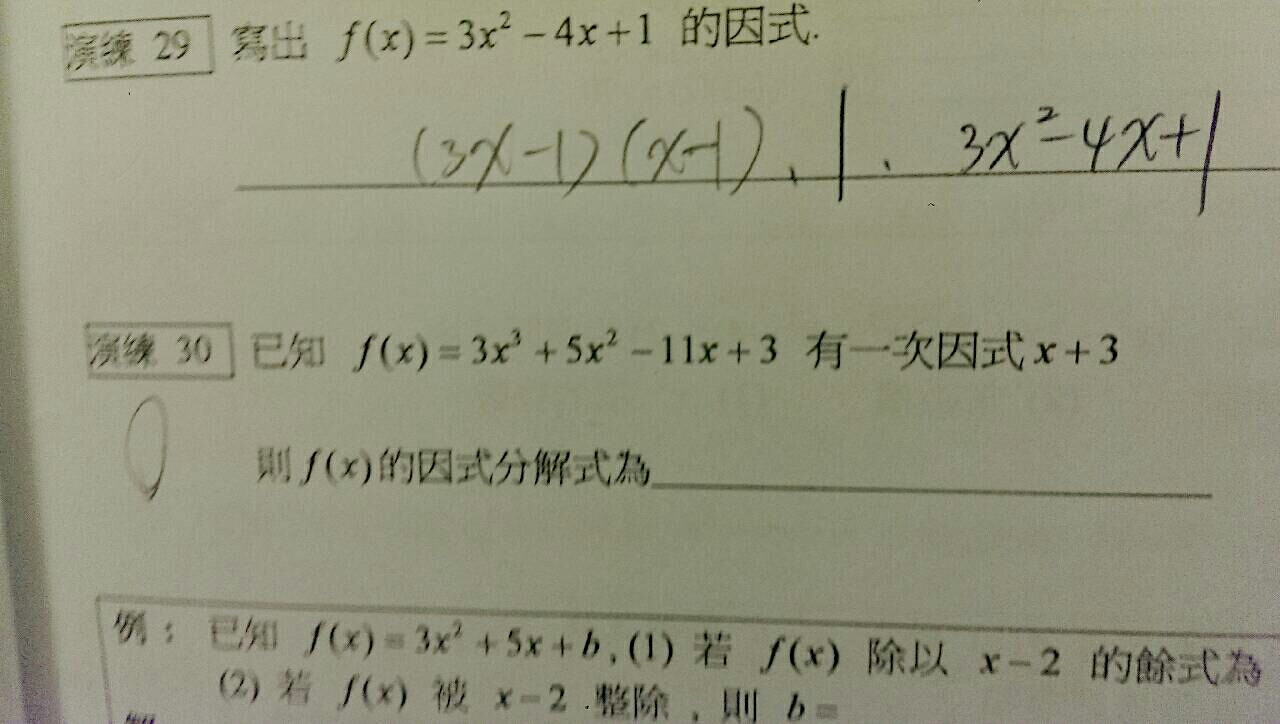 演練 29 寫出 f(x) = 3x² − 4x + 1 的因式.
(3x-1)(x-1)、1、3x²-4x+1
演練 30 已知 f(x) = 3x³ + 5x² − 11x + 3 有一次因式 x + 3
則 f(x) 的因式分解式為
例： 已知 f(x) = 3x² + 5x + b , (1) 若 f(x) 除以 x − 2 的餘式為
(2) 若 f(x) 被 x − 2 整除 , 則 b =